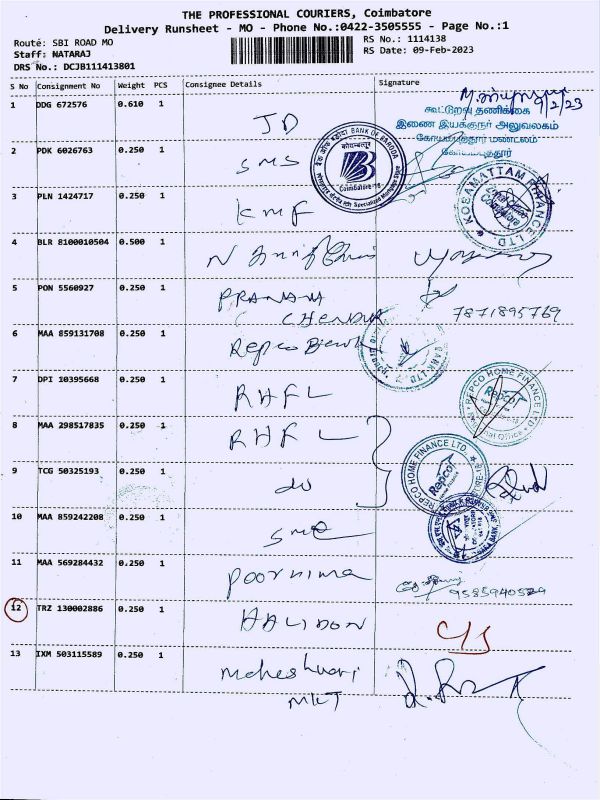 THE PROFESSIONAL COURIERS, Coimbatore
Delivery Runsheet - MO - Phone No.:0422-3505555 - Page No.:1
Route: SBI ROAD MO
RS No.: 1114138
Staff: NATARAJ
RS Date: 09-Feb-2023
DRS No.: DCJB111413801
S No Consignment No Weight PCS Consignee Details Signature
9/2/23
கூட்டுறவு தணிக்கை
இணை இயக்குநர் அலுவலகம்
கோயம்புத்தூர் மண்டலம்
கோயம்புத்தூர்
1 DDG 672576 0.610 1 JD
BANK OF BARODA
Coimbatore
2 PDK 6026763 0.250 1 SMS
KOSAMATTAM FINANCE LTD.
3 PLN 1424717 0.250 1 KMF
4 BLR 8100010504 0.500 1
5 PON 5560927 0.250 1 PRANAVA
CHENDUR
7871895769
6 MAA 859131708 0.250 1 Repco Bank
7 DPI 10395668 0.250 1 RHFL
REPCO HOME FINANCE LTD
Repco
8 MAA 298517835 0.250 1 RHFL
REPCO HOME FINANCE LTD.
Repco
9 TCG 50325193 0.250 1 do
10 MAA 859242208 0.250 1 SME
11 MAA 569284432 0.250 1 Poornima
9585940529
12 TRZ 130002886 0.250 1 HALIDON
C/S
13 IXM 503115589 0.250 1 Maheshwari
MKT